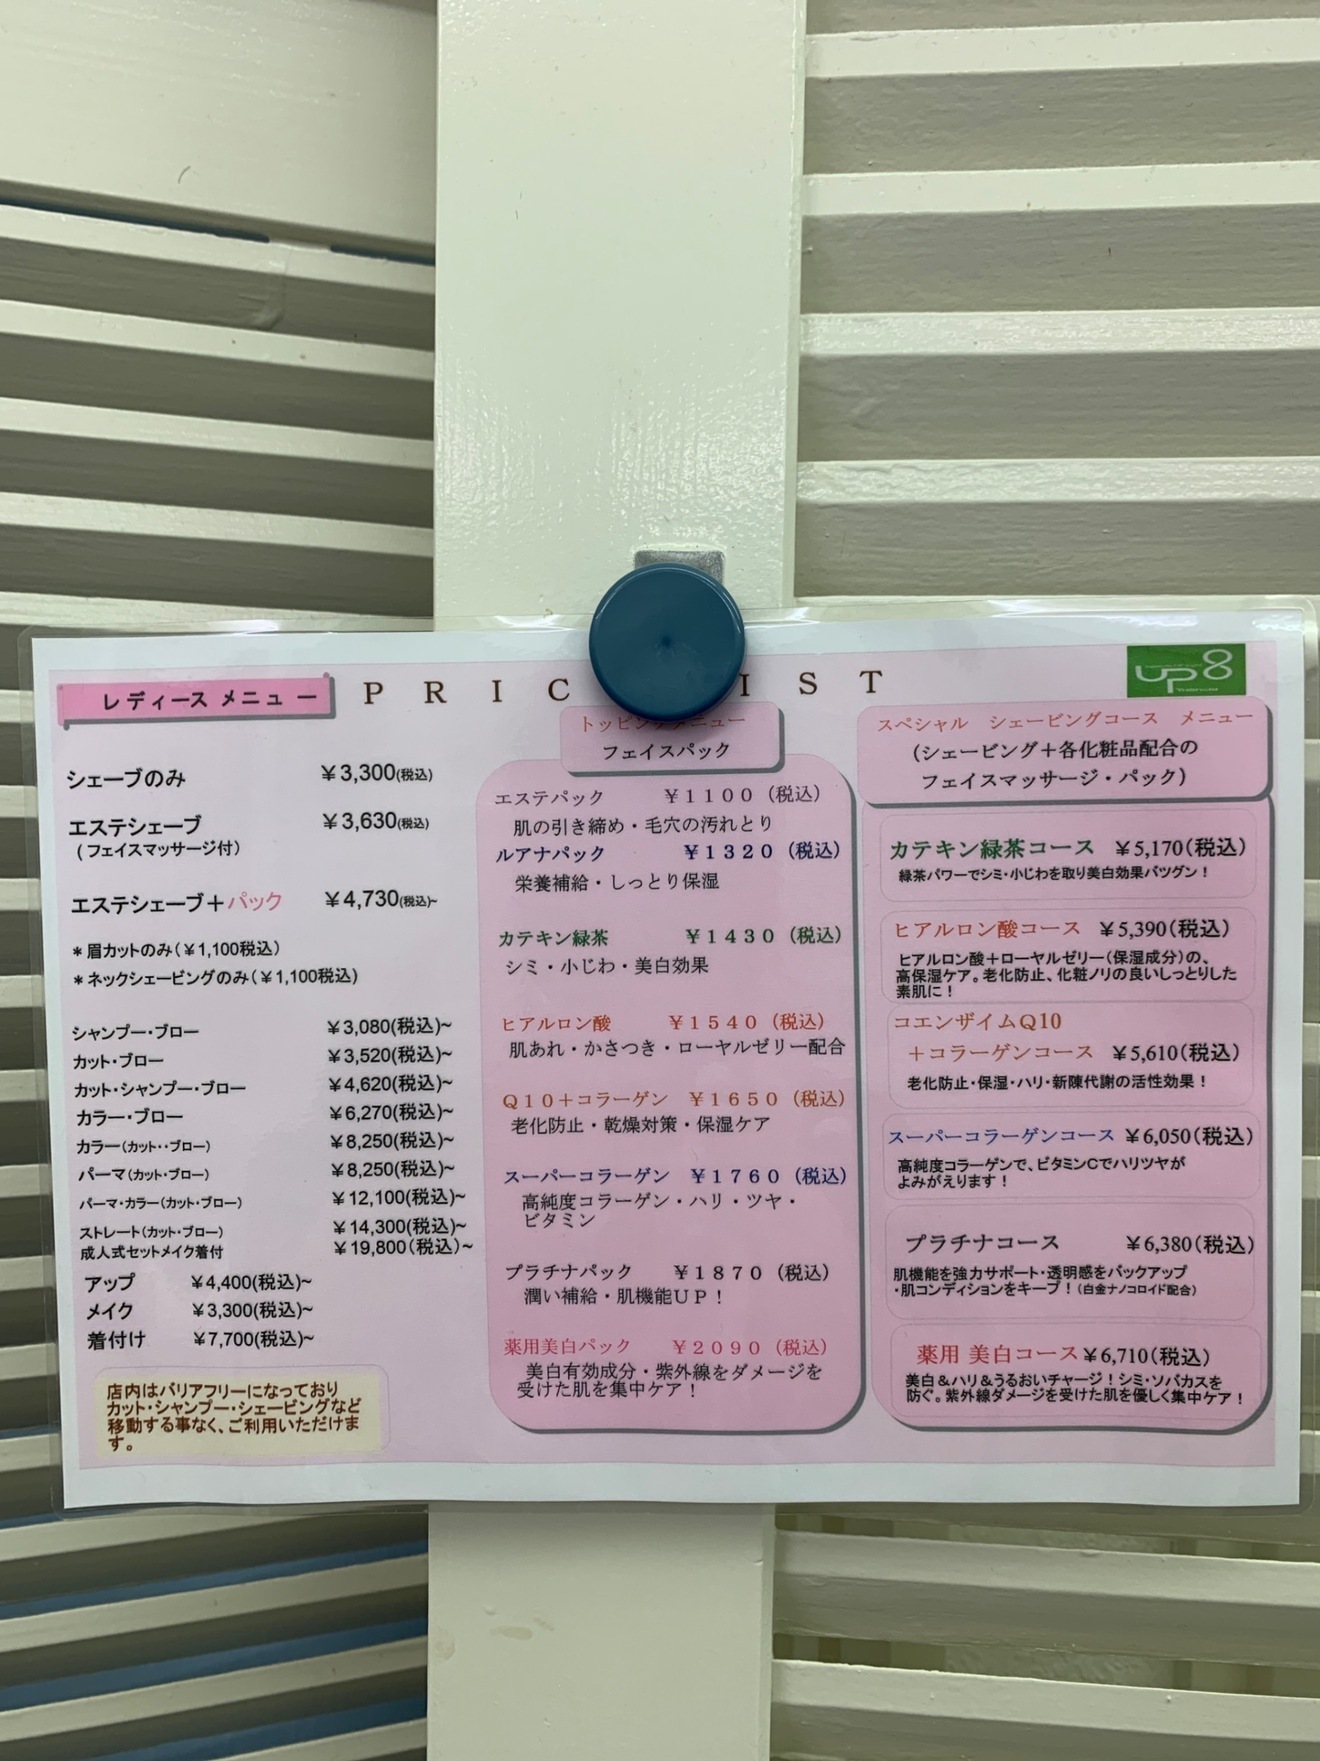 レディース メニュー
PRIC IST
up8
シェーブのみ ￥3,300(税込)
エステシェーブ ￥3,630(税込)
(フェイスマッサージ付)
エステシェーブ＋パック ￥4,730(税込)~
＊眉カットのみ(￥1,100税込)
＊ネックシェービングのみ(￥1,100税込)
シャンプー・ブロー ￥3,080(税込)~
カット・ブロー ￥3,520(税込)~
カット・シャンプー・ブロー ￥4,620(税込)~
カラー・ブロー ￥6,270(税込)~
カラー(カット・・ブロー) ￥8,250(税込)~
パーマ(カット・ブロー) ￥8,250(税込)~
パーマ・カラー(カット・ブロー) ￥12,100(税込)~
ストレート(カット・ブロー) ￥14,300(税込)~
成人式セットメイク着付 ￥19,800(税込)~
アップ ￥4,400(税込)~
メイク ￥3,300(税込)~
着付け ￥7,700(税込)~
店内はバリアフリーになっており
カット・シャンプー・シェービングなど
移動する事なく、ご利用いただけま
す。
トッピングメニュー
フェイスパック
エステパック ￥１１００（税込）
肌の引き締め・毛穴の汚れとり
ルアナパック ￥１３２０（税込）
栄養補給・しっとり保湿
カテキン緑茶 ￥１４３０（税込）
シミ・小じわ・美白効果
ヒアルロン酸 ￥１５４０（税込）
肌あれ・かさつき・ローヤルゼリー配合
Ｑ１０＋コラーゲン ￥１６５０（税込）
老化防止・乾燥対策・保湿ケア
スーパーコラーゲン ￥１７６０（税込）
高純度コラーゲン・ハリ・ツヤ・
ビタミン
プラチナパック ￥１８７０（税込）
潤い補給・肌機能ＵＰ！
薬用美白パック ￥２０９０（税込）
美白有効成分・紫外線をダメージを
受けた肌を集中ケア！
スペシャル シェービングコース メニュー
(シェービング＋各化粧品配合の
フェイスマッサージ・パック)
カテキン緑茶コース ￥5,170(税込)
緑茶パワーでシミ・小じわを取り美白効果バツグン！
ヒアルロン酸コース ￥5,390(税込)
ヒアルロン酸＋ローヤルゼリー(保湿成分)の、
高保湿ケア。老化防止、化粧ノリの良いしっとりした
素肌に！
コエンザイムQ10
＋コラーゲンコース ￥5,610(税込)
老化防止・保湿・ハリ・新陳代謝の活性効果！
スーパーコラーゲンコース ￥6,050(税込)
高純度コラーゲンで、ビタミンCでハリツヤが
よみがえります！
プラチナコース ￥6,380(税込)
肌機能を強力サポート・透明感をバックアップ
・肌コンディションをキープ！(白金ナノコロイド配合)
薬用 美白コース ￥6,710(税込)
美白＆ハリ＆うるおいチャージ！シミ・ソバカスを
防ぐ。紫外線ダメージを受けた肌を優しく集中ケア！